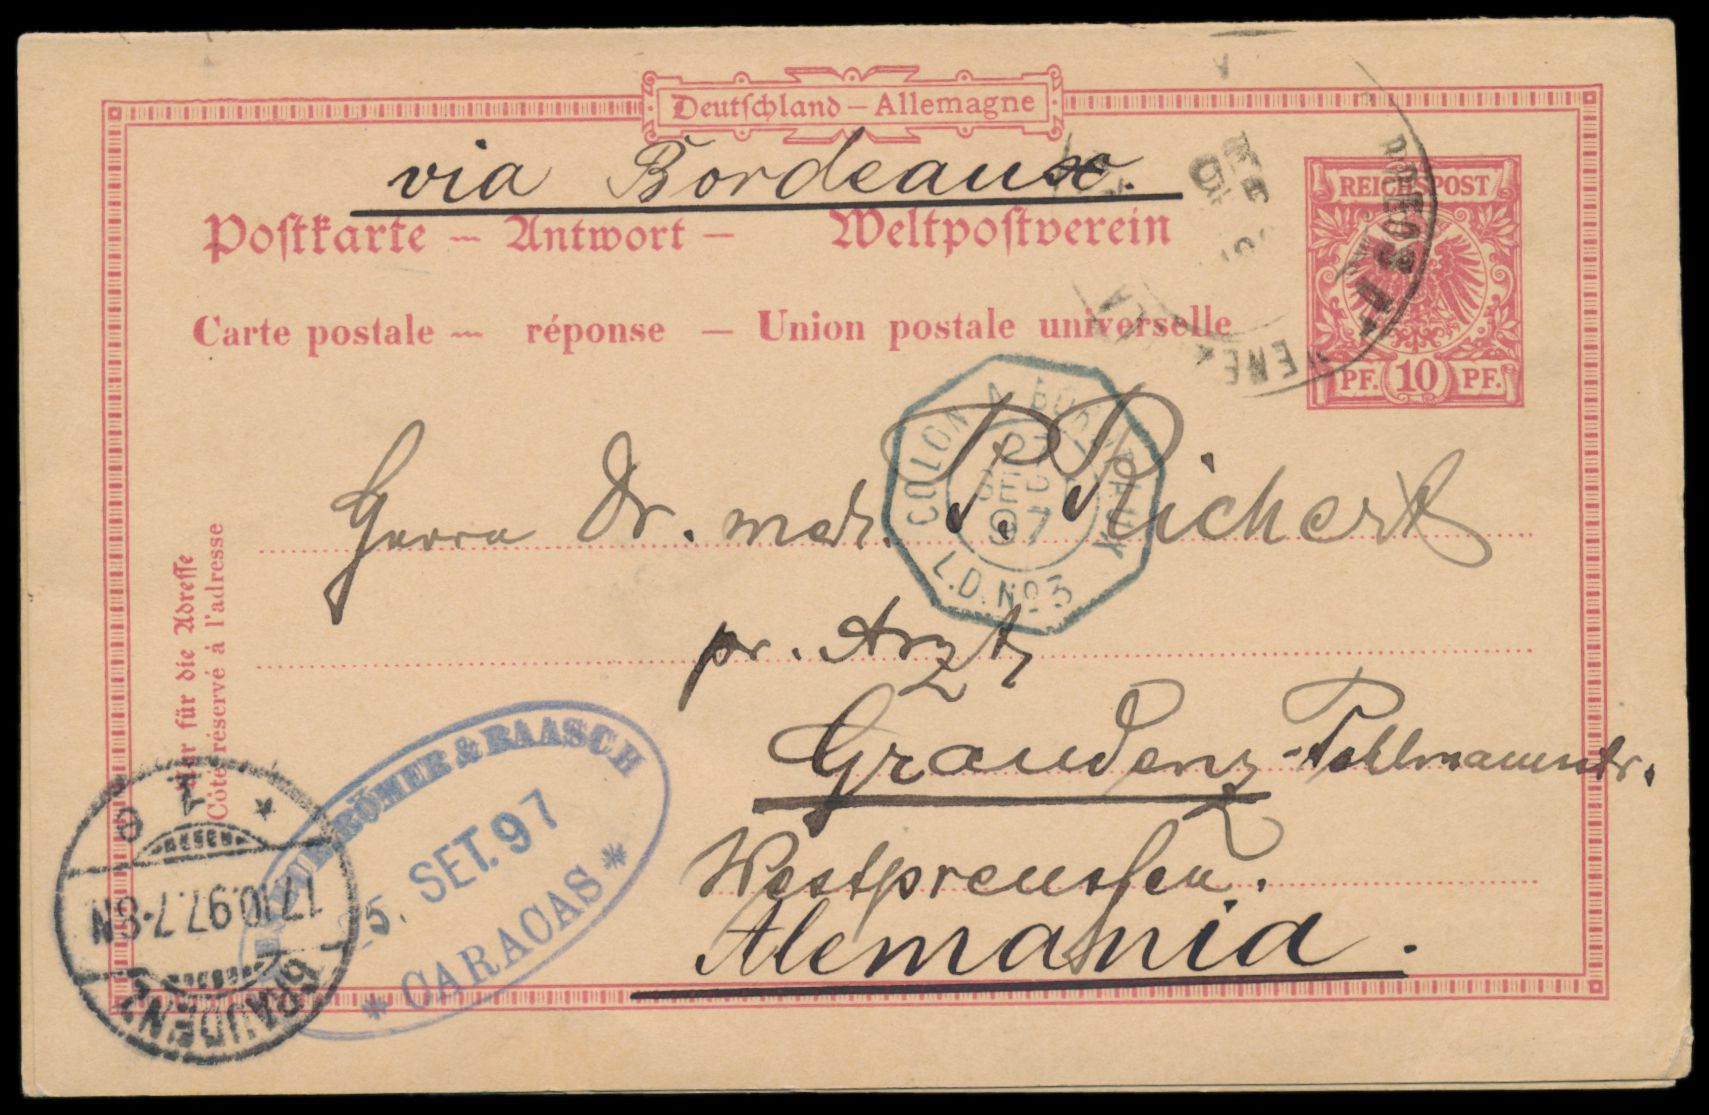 Deutschland – Allemagne
via Bordeaux.
Postkarte – Antwort – Weltpostverein
Carte postale – réponse – Union postale universelle
REICHSPOST
PF. 10 PF.
VENE
COLON A BORDEAUX
27
SEPT
97
L.D. No 3
Herrn Dr. med. P. Richert
pr. Arzt
Graudenz
Westpreussen.
Alemania.
Nur für die Adresse
Côté réservé à l'adresse
RÖMER & BAASCH
25. SET. 97
* CARACAS *
GRAUDENZ
17.10.97.7-8N